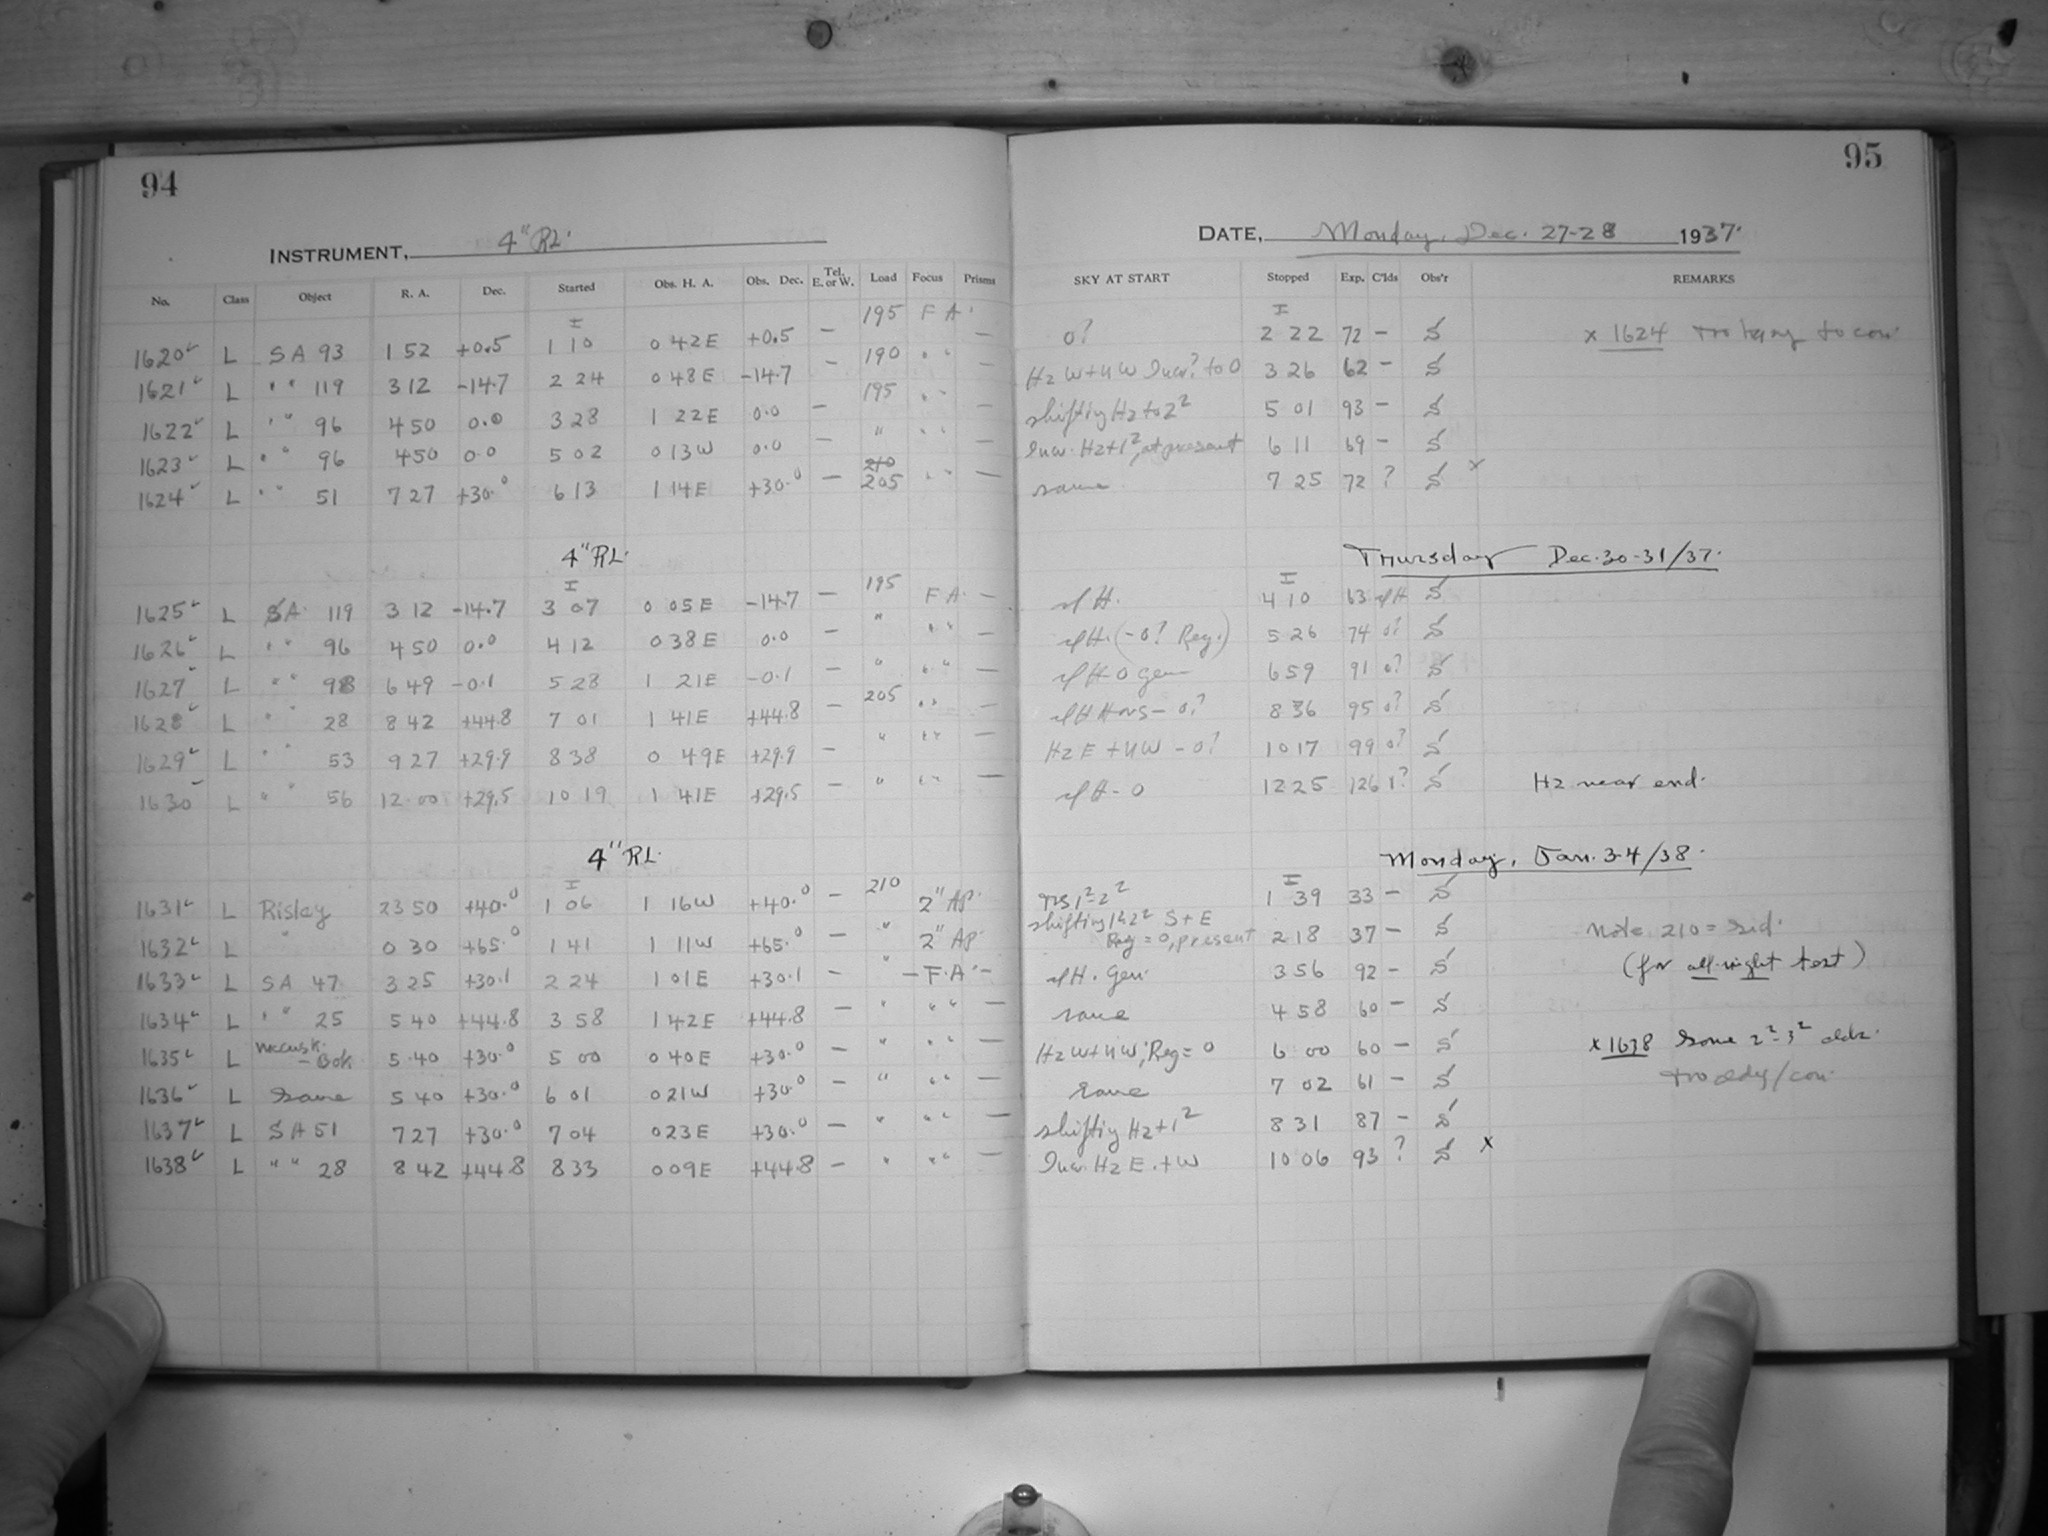 94
95
INSTRUMENT, 4" RL.
DATE, Monday, Dec. 27-28 1937.
No. Class Object R. A. Dec. Started Obs. H. A. Obs. Dec. Tel. E. or W. Load Focus Prisms SKY AT START Stopped Exp. C'lds Obs'r REMARKS
1620 L SA 93 1 52 +0.5 1 10 0 42E +0.5 — 195 F A. — 0? 2 22 72 — S x 1624 to con
1621 L " " 119 3 12 -14.7 2 24 0 48E -14.7 — 190 " " — Hz W+NW Incr? to 0 3 26 62 — S
1622 L " " 96 4 50 0.0 3 28 1 22E 0.0 — 195 " " — shifting Hz to 2² 5 01 93 — S
1623 L " " 96 4 50 0.0 5 02 0 13W 0.0 — " " " — Incr. Hz+1², at present 6 11 69 — S
1624 L " " 51 7 27 +30.0 6 13 1 14E +30.0 — 210 205 " " — same 7 25 72 ? S x
4" RL.
Thursday Dec. 30-31/37.
1625 L SA 119 3 12 -14.7 3 07 0 05E -14.7 — 195 F A. — sl H. 4 10 63 sl H S
1626 L " " 96 4 50 0.0 4 12 0 38E 0.0 — " " " — sl H. (-0? Reg.) 5 26 74 0? S
1627 L " " 98 6 49 -0.1 5 28 1 21E -0.1 — " " " — sl H 0 gen 6 59 91 0? S
1628 L " " 28 8 42 +44.8 7 01 1 41E +44.8 — 205 " " — sl H Hors - 0? 8 36 95 0? S
1629 L " " 53 9 27 +29.9 8 38 0 49E +29.9 — " " " — Hz E + NW - 0? 10 17 99 0? S
1630 L " " 56 12 00 +29.5 10 19 1 41E +29.5 — " " " — sl H - 0 12 25 126 1? S Hz near end.
4" RL.
Monday, Jan. 3-4/38.
1631 L Risley 23 50 +40.0 1 06 1 16W +40.0 — 210 2" Ap. 1²-2² 1 39 33 — S
1632 L " 0 30 +65.0 1 41 1 11W +65.0 — " 2" Ap. shifting 1&2² S+E Reg = 0, present 2 18 37 — S Note 210 = sid.
1633 L SA 47 3 25 +30.1 2 24 1 01E +30.1 — " — F.A. — sl H. Gen. 3 56 92 — S (for all-night test)
1634 L " " 25 5 40 +44.8 3 58 1 42E +44.8 — " " " — same 4 58 60 — S
1635 L McCusk. - Bok 5 40 +30.0 5 00 0 40E +30.0 — " " " — Hz W+NW; Reg = 0 6 00 60 — S x 1638 Some 2²-3² clds.
1636 L Same 5 40 +30.0 6 01 0 21W +30.0 — " " " — same 7 02 61 — S too cldy/con.
1637 L SA 51 7 27 +30.0 7 04 0 23E +30.0 — " " " — shifting Hz+1² 8 31 87 — S
1638 L " " 28 8 42 +44.8 8 33 0 09E +44.8 — " " " — Incr. Hz E. + W 10 06 93 ? S x